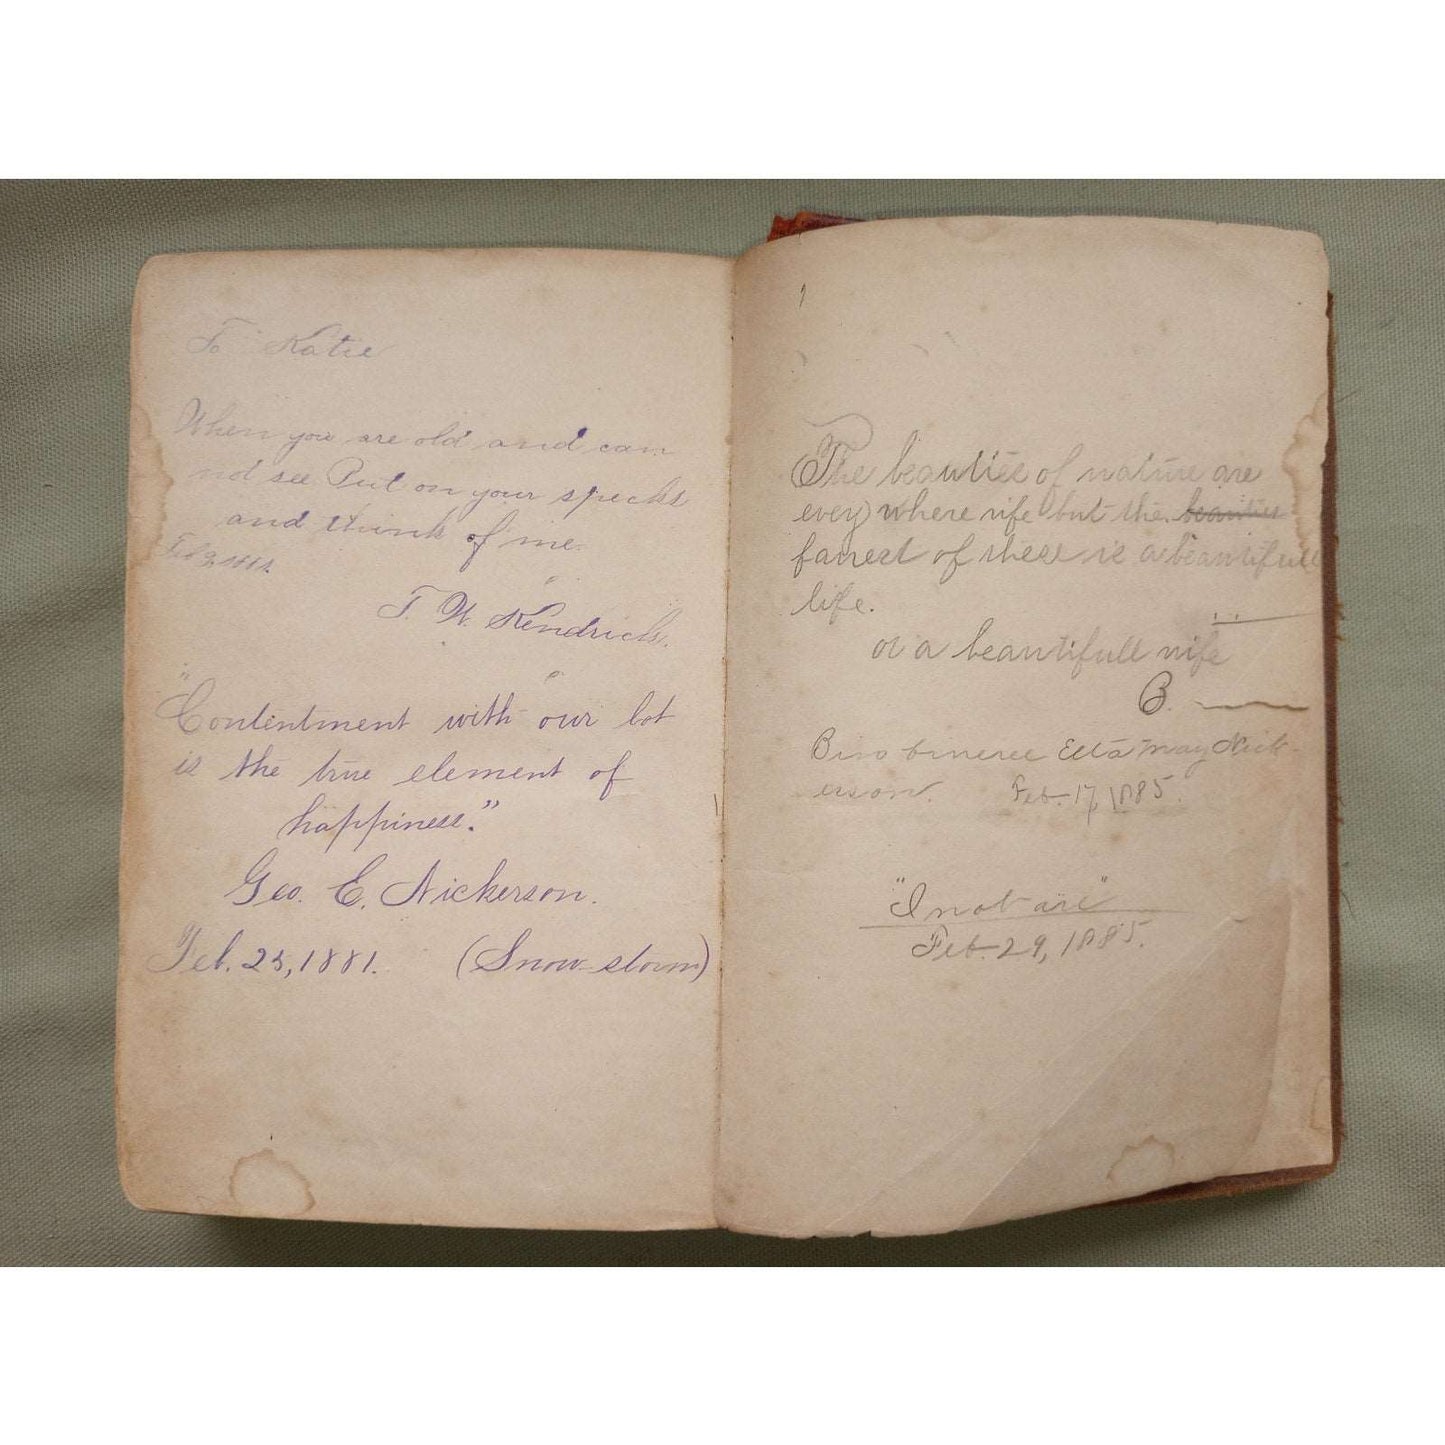 To Katie
When you are old and can
not see Put on your specks
and think of me.
Feb 1881.
T. W. Kendrick.
"Contentment with our lot
is the true element of
happiness."
Geo. E. Nickerson.
Feb. 23, 1881. (Snow-storm)
The beauties of nature are
every where rife but the beauties
fairest of these is a beautifull
life.
or a beautifull wife
B.
Etta May Nick-
erson. Feb. 17, 1885.
"I not are"
Feb. 29, 1885.